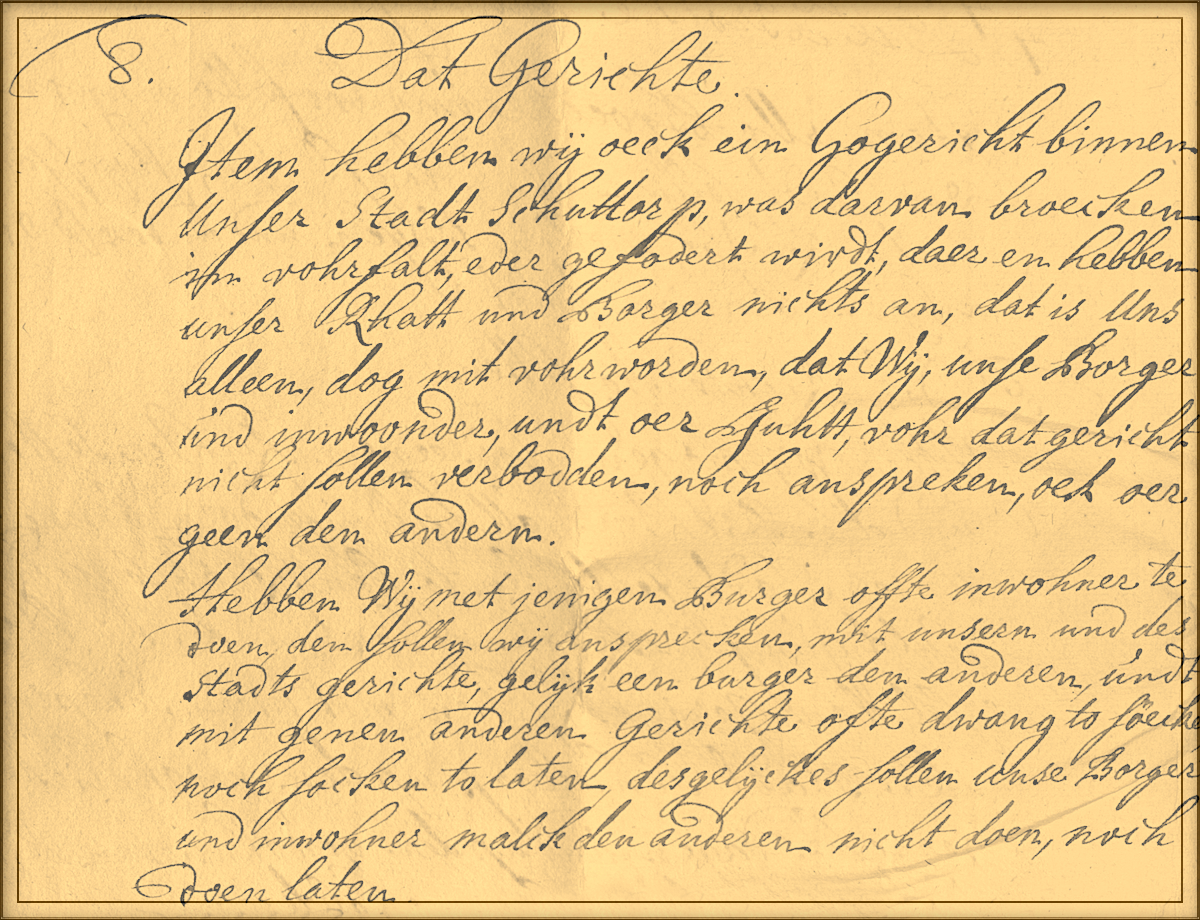 8. Dat Gerichte.
Item hebben wÿ oeck ein Gogericht binnen
Unser Stadt Schuttorp, was darvan broecken
im vohrfalt, eder gefodert wirdt, daer en hebben
unser Rhatt und Borger nichts an, dat is Uns
alleen, dog mit vohrworden, dat Wÿ, unse Borger
und inwoonder, undt oer Guhtt, vohr dat gericht
nicht sollen verbodden, noch anspreken, ock oer
geen den andern.
Hebben Wÿ met jenigen Burger offte inwohner te
doen, den sollen wÿ ansprecken, mit unsern und des
Stadts gerichte, gelÿk een burger den anderen, undt
mit genen anderen Gerichte ofte dwang to söecke
noch socken to laten, desgelÿckes sollen unse Borger
und inwohner malck den anderen nicht doen, noch
doen laten.